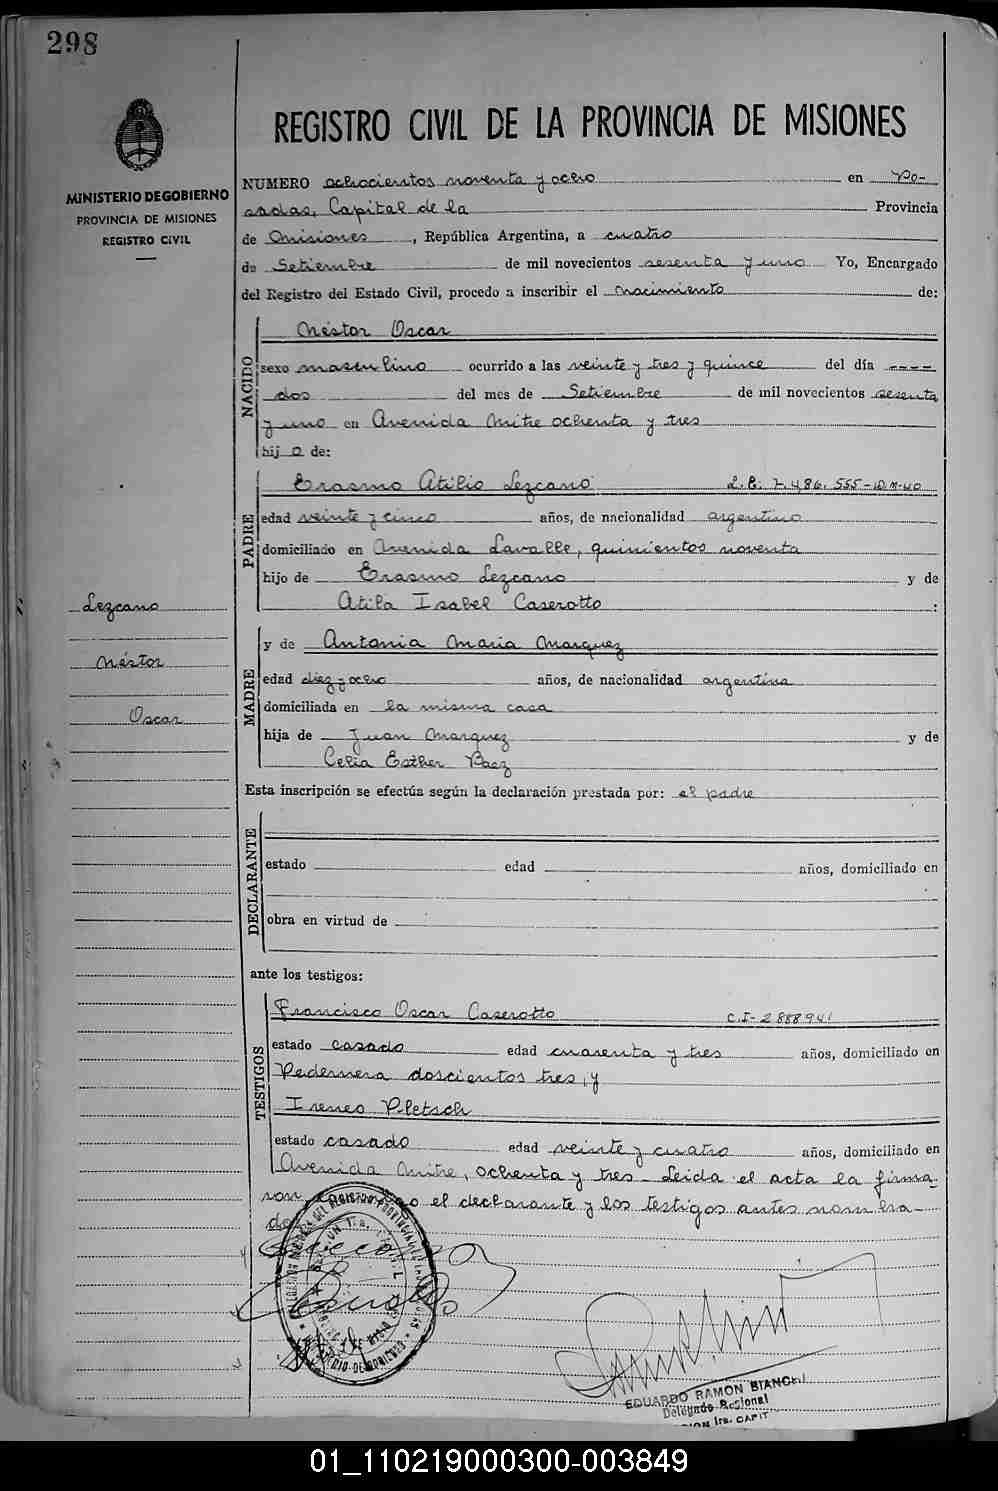 298
REGISTRO CIVIL DE LA PROVINCIA DE MISIONES
MINISTERIO DE GOBIERNO
PROVINCIA DE MISIONES
REGISTRO CIVIL
NUMERO ochocientos noventa y ocho en Po-
sadas, Capital de la Provincia
de Misiones, República Argentina, a cuatro
de Setiembre de mil novecientos sesenta y uno Yo, Encargado
del Registro del Estado Civil, procedo a inscribir el nacimiento de:
NACIDO
Néstor Oscar
sexo masculino ocurrido a las veinte y tres y quince del día ----
dos del mes de Setiembre de mil novecientos sesenta
y uno en Avenida Mitre ochenta y tres
hijo de:
PADRE
Erasmo Atilio Lezcano L.E. 7.486.555-D.M.40
edad veinte y cinco años, de nacionalidad argentino
domiciliado en Avenida Lavalle, quinientos noventa
hijo de Erasmo Lezcano y de
Atila Isabel Caserotto :
Lezcano
Néstor
Oscar
MADRE
y de Antonia Maria Marquez
edad diez y ocho años, de nacionalidad argentina
domiciliada en la misma casa
hija de Juan Marquez y de
Celia Esther Baez
Esta inscripción se efectúa según la declaración prestada por: el padre
DECLARANTE
estado edad años, domiciliado en
obra en virtud de
ante los testigos:
TESTIGOS
Francisco Oscar Caserotto C.I-2888941
estado casado edad cuarenta y tres años, domiciliado en
Pedernera doscientos tres, y
Ireneo Pletsch
estado casado edad veinte y cuatro años, domiciliado en
Avenida Mitre, ochenta y tres - Leida el acta la firma-
ron el declarante y los testigos antes nombra-
do
EDUARDO RAMON BIANCHI
Delegado Regional
Ira. CAPIT
01_110219000300-003849